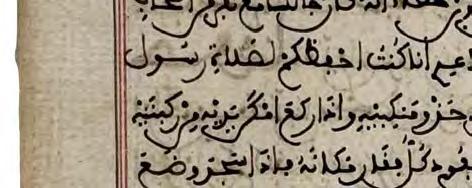 انا كنت احفظكم لصلاة رسول
حذو منكبيه واذا ركع امكن يديه من ركبتيه
يعود كل فقار مكانه فاذا سجد وضع